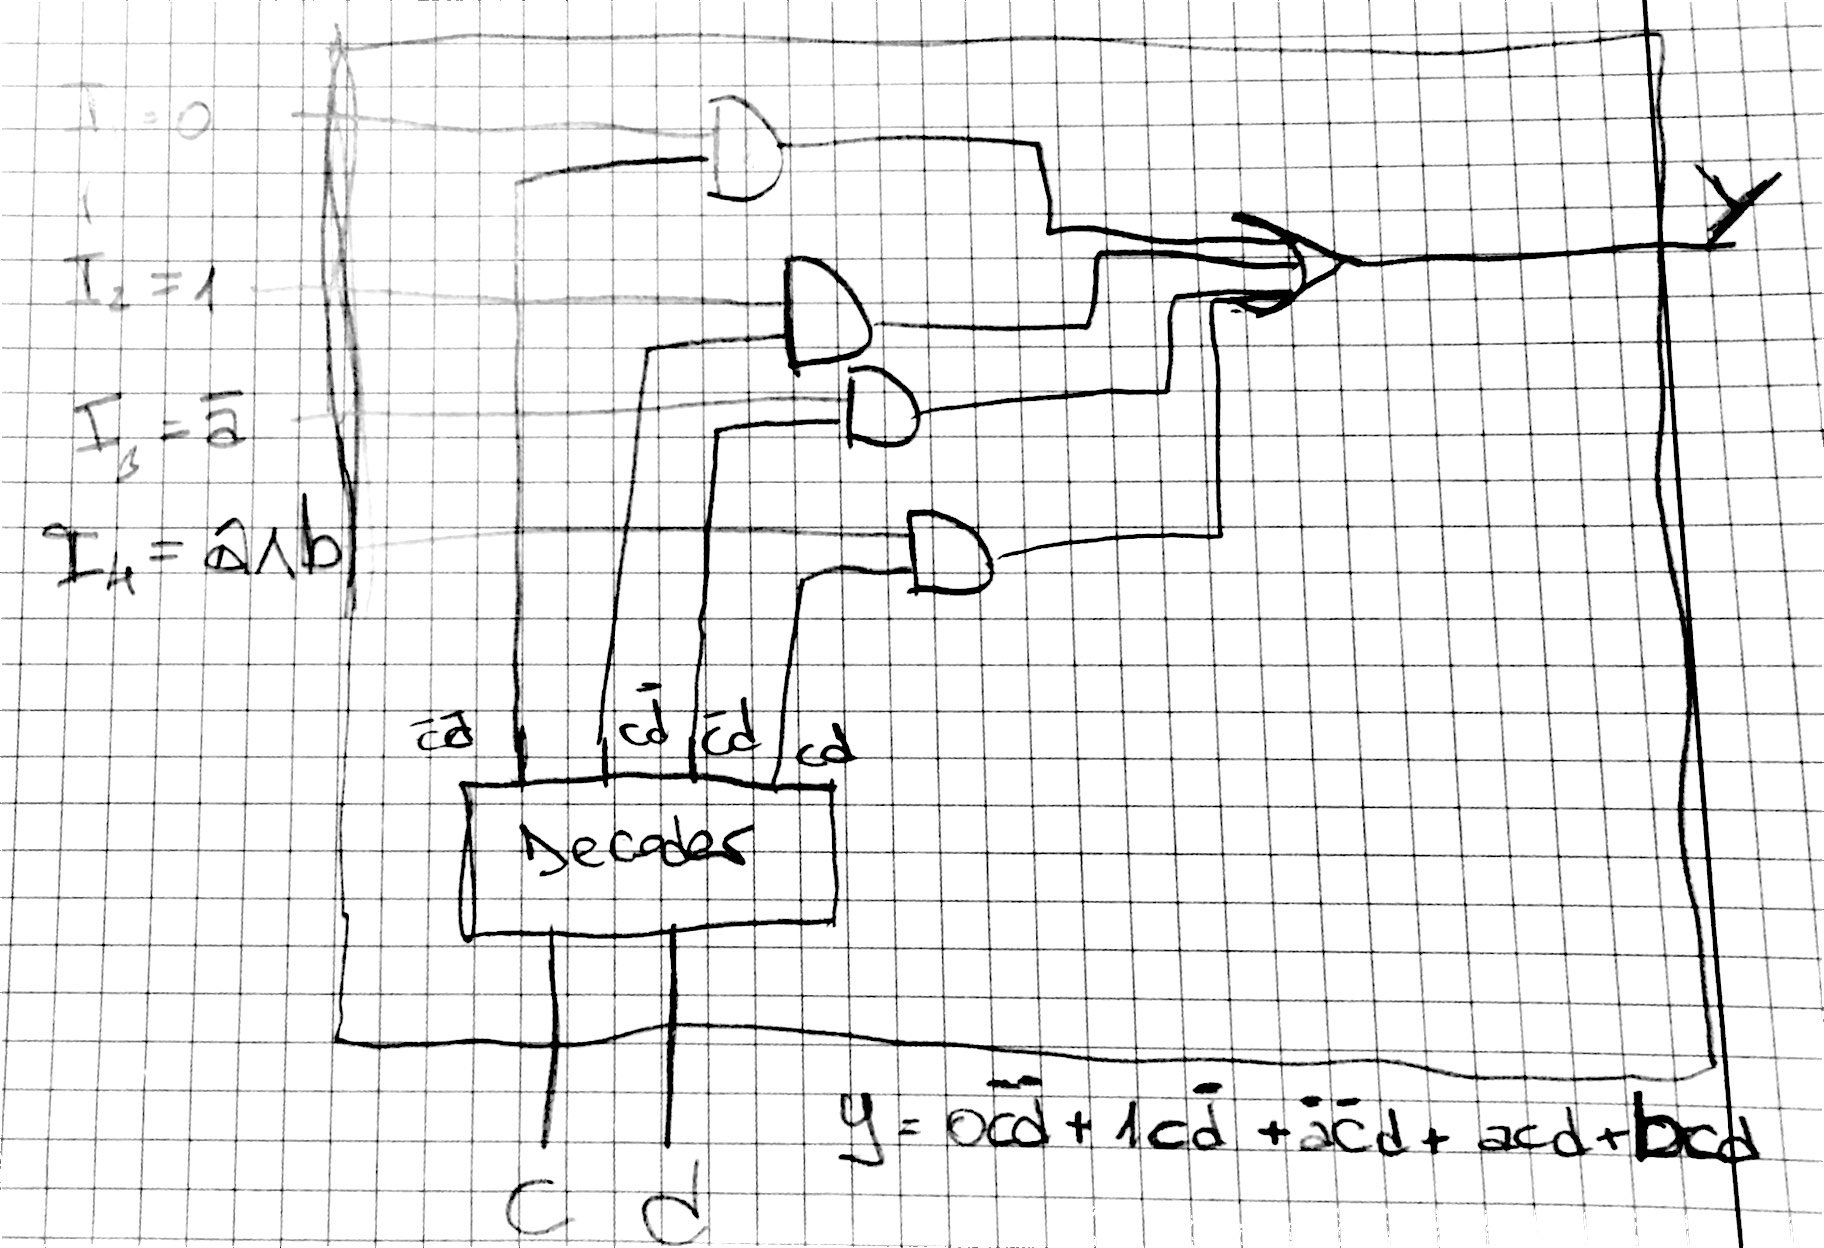 I = 0
Y
I₂ = 1
I₃ = a̅
I₄ = a∧b
c̅d̅ cd̅ c̅d cd
Decoder
y = 0c̅d̅ + 1cd̅ + a̅c̅d + acd + bcd
c d